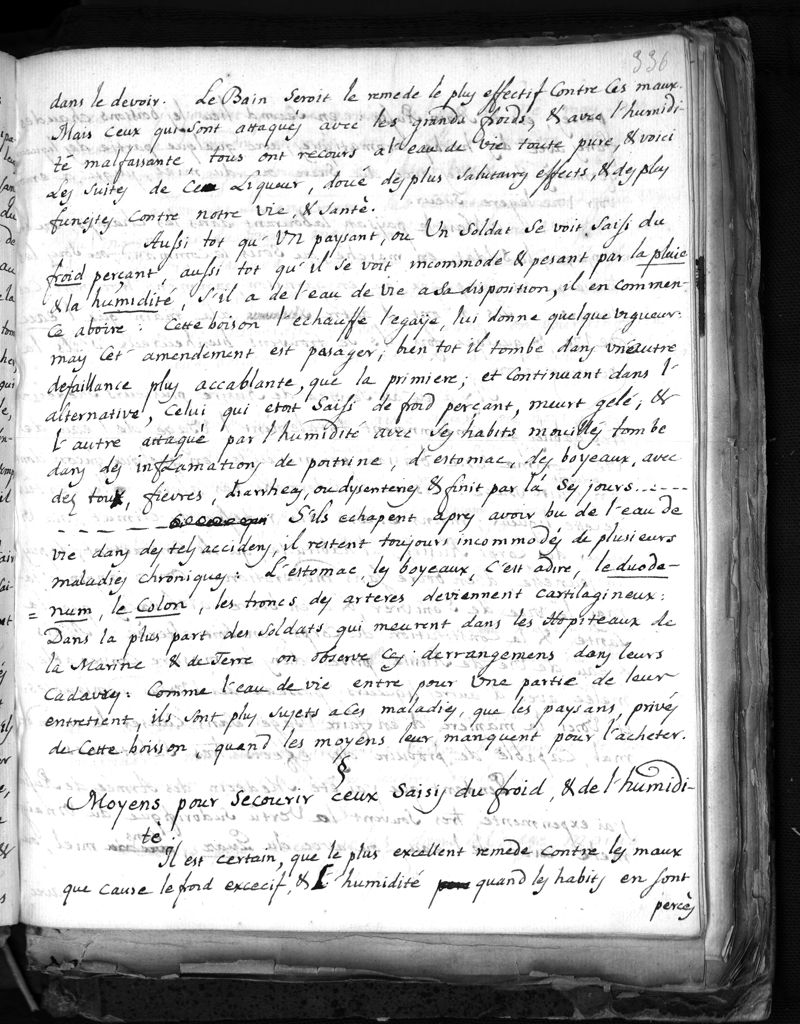 336
dans le devoir. Le Bain seroit le remede le plus effectif Contre Ces maux.
Mais ceux qui sont attaqués avec les grands froids, & avec l'humidi-
té malfassante, tous ont recours a l'eau de vie toute pure, & voici
Les suites de Ce Liqueur, doué des plus salutaires effects, & des plus
funestes contre notre vie, & santè.
Aussi tot qu' un paysant, ou un soldat se voit saisi du
froid perçant, aussi tot qu'il se voit incommodé & pesant par la pluie
& la humidité, s'il a de l'eau de vie a sa disposition, il en commen-
ce aboire: Cette boison l'echauffe l'egaÿe, lui donne quelque vigueur:
mais Cet amendement est pasager; bien tot il tombe dans une autre
defaillance plus accablante, que la primiere; et continuant dans l'
alternative, Celui qui etoit saisi de froid perçant, meurt gelé; &
l'autre attaqué par l'humidité avec ses habits mouillés tombe
dans des inflamations de poitrine, d'estomac, des boyeaux, avec
des toux, fièvres, diarrhees, ou dysenteries & finit par là ses jours.----
- - - - - - S'ils echapent apres avoir bu de l'eau de
vie dans des tels accidens, il restent toujours incommodés de plusieurs
maladies chroniques: L'estomac, les boyeaux, c'est adire, le duode-
= num, le Colon, les troncs des arteres deviennent cartilagineux:
Dans la plus part des soldats qui meurent dans les Hopiteaux de
la Marine & de Terre on observe ces derrangemens dans leurs
Cadavres: Comme l'eau de vie entre pour une partie de leur
entretient, ils sont plus sujets a Ces maladies, que les paysans, privés
de Cette boisson, quand les moyens leur manquent pour l'acheter.
§
Moyens pour secourir ceux saisis du froid, & de l'humidi-
tè:
Il est certain, que le plus excellent remede contre les maux
que cause le froid excecif, & L'humidité quand les habits en sont
percès